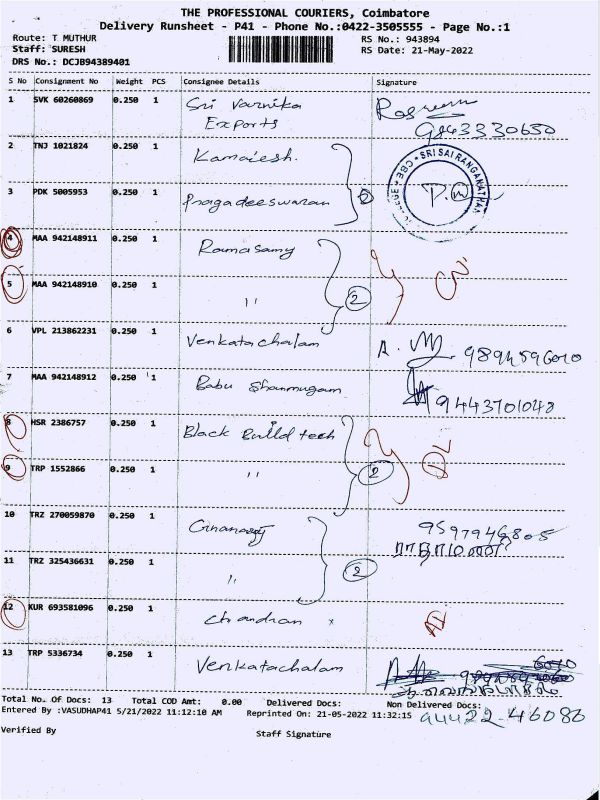 THE PROFESSIONAL COURIERS, Coimbatore
Delivery Runsheet - P41 - Phone No.:0422-3505555 - Page No.:1
Route: T MUTHUR RS No.: 943894
Staff: SURESH RS Date: 21-May-2022
DRS No.: DCJB94389401
S No Consignment No Weight PCS Consignee Details Signature
1 SVK 60260869 0.250 1 Sri Varnika
Exports 9843330650
2 TNJ 1021824 0.250 1 Kamalesh.
SRI SAI RANGANATHAR
3 PDK 5005953 0.250 1 Pragadeeswaran
4 MAA 942148911 0.250 1 Ramasamy
5 MAA 942148910 0.250 1 " 2
6 VPL 213862231 0.250 1 Venkatachalam A.
7 MAA 942148912 0.250 1 Babu Shanmugam 9443701048
8 HSR 2386757 0.250 1 Black Build tech DL
9 TRP 1552866 0.250 1 " 2
10 TRZ 270059870 0.250 1 9597946805
11 TRZ 325436631 0.250 1 " 2
12 KUR 693581096 0.250 1 Chandran
13 TRP 5336734 0.250 1 Venkatachalam
Total No. Of Docs: 13 Total COD Amt: 0.00 Delivered Docs: Non Delivered Docs:
Entered By :VASUDHAP41 5/21/2022 11:12:10 AM Reprinted On: 21-05-2022 11:32:15 94422-46080
Verified By Staff Signature